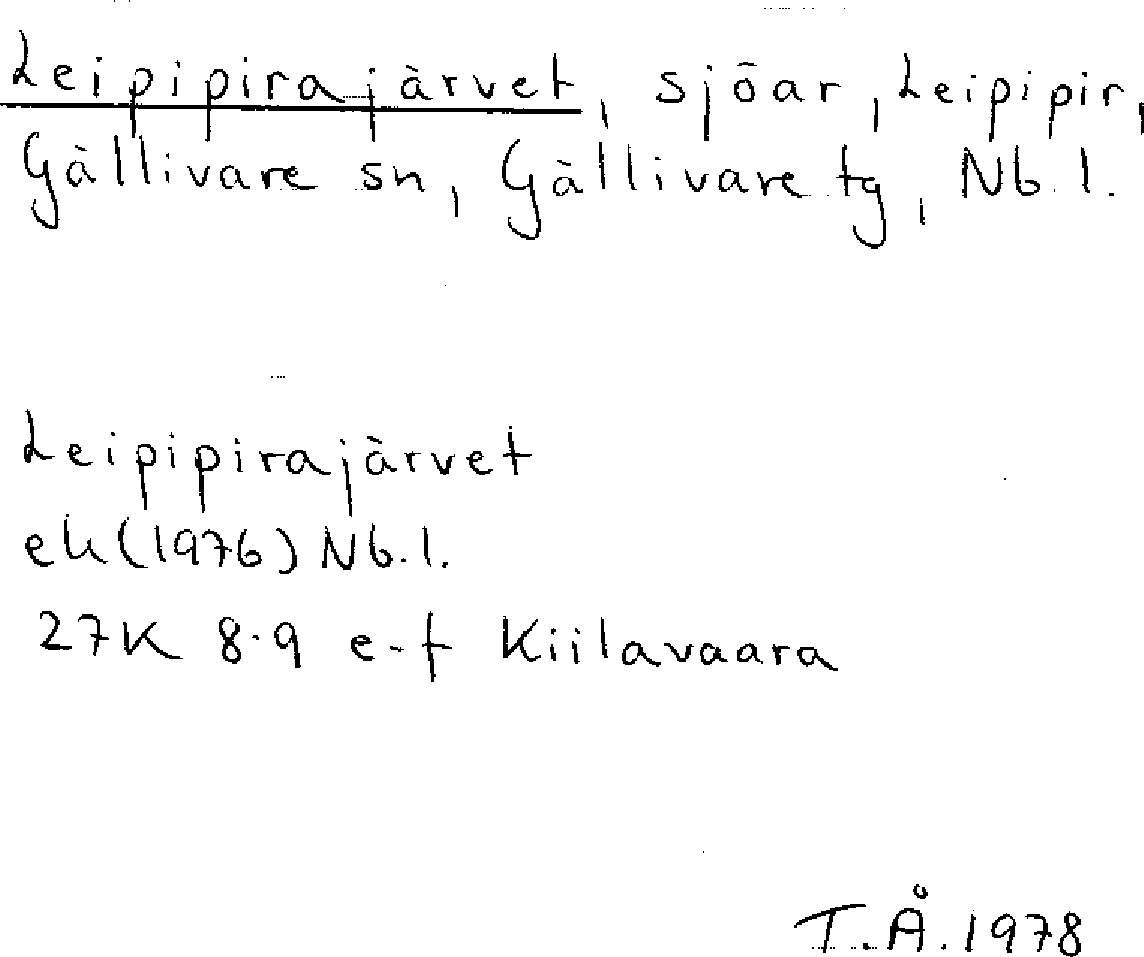 Leipipirajärvet, sjöar, Leipipir,
Gällivare sn, Gällivare tg, Nb. l.
Leipipirajärvet
ek (1976) Nb. l.
27K 8-9 e-f Kiilavaara
T.Å. 1978